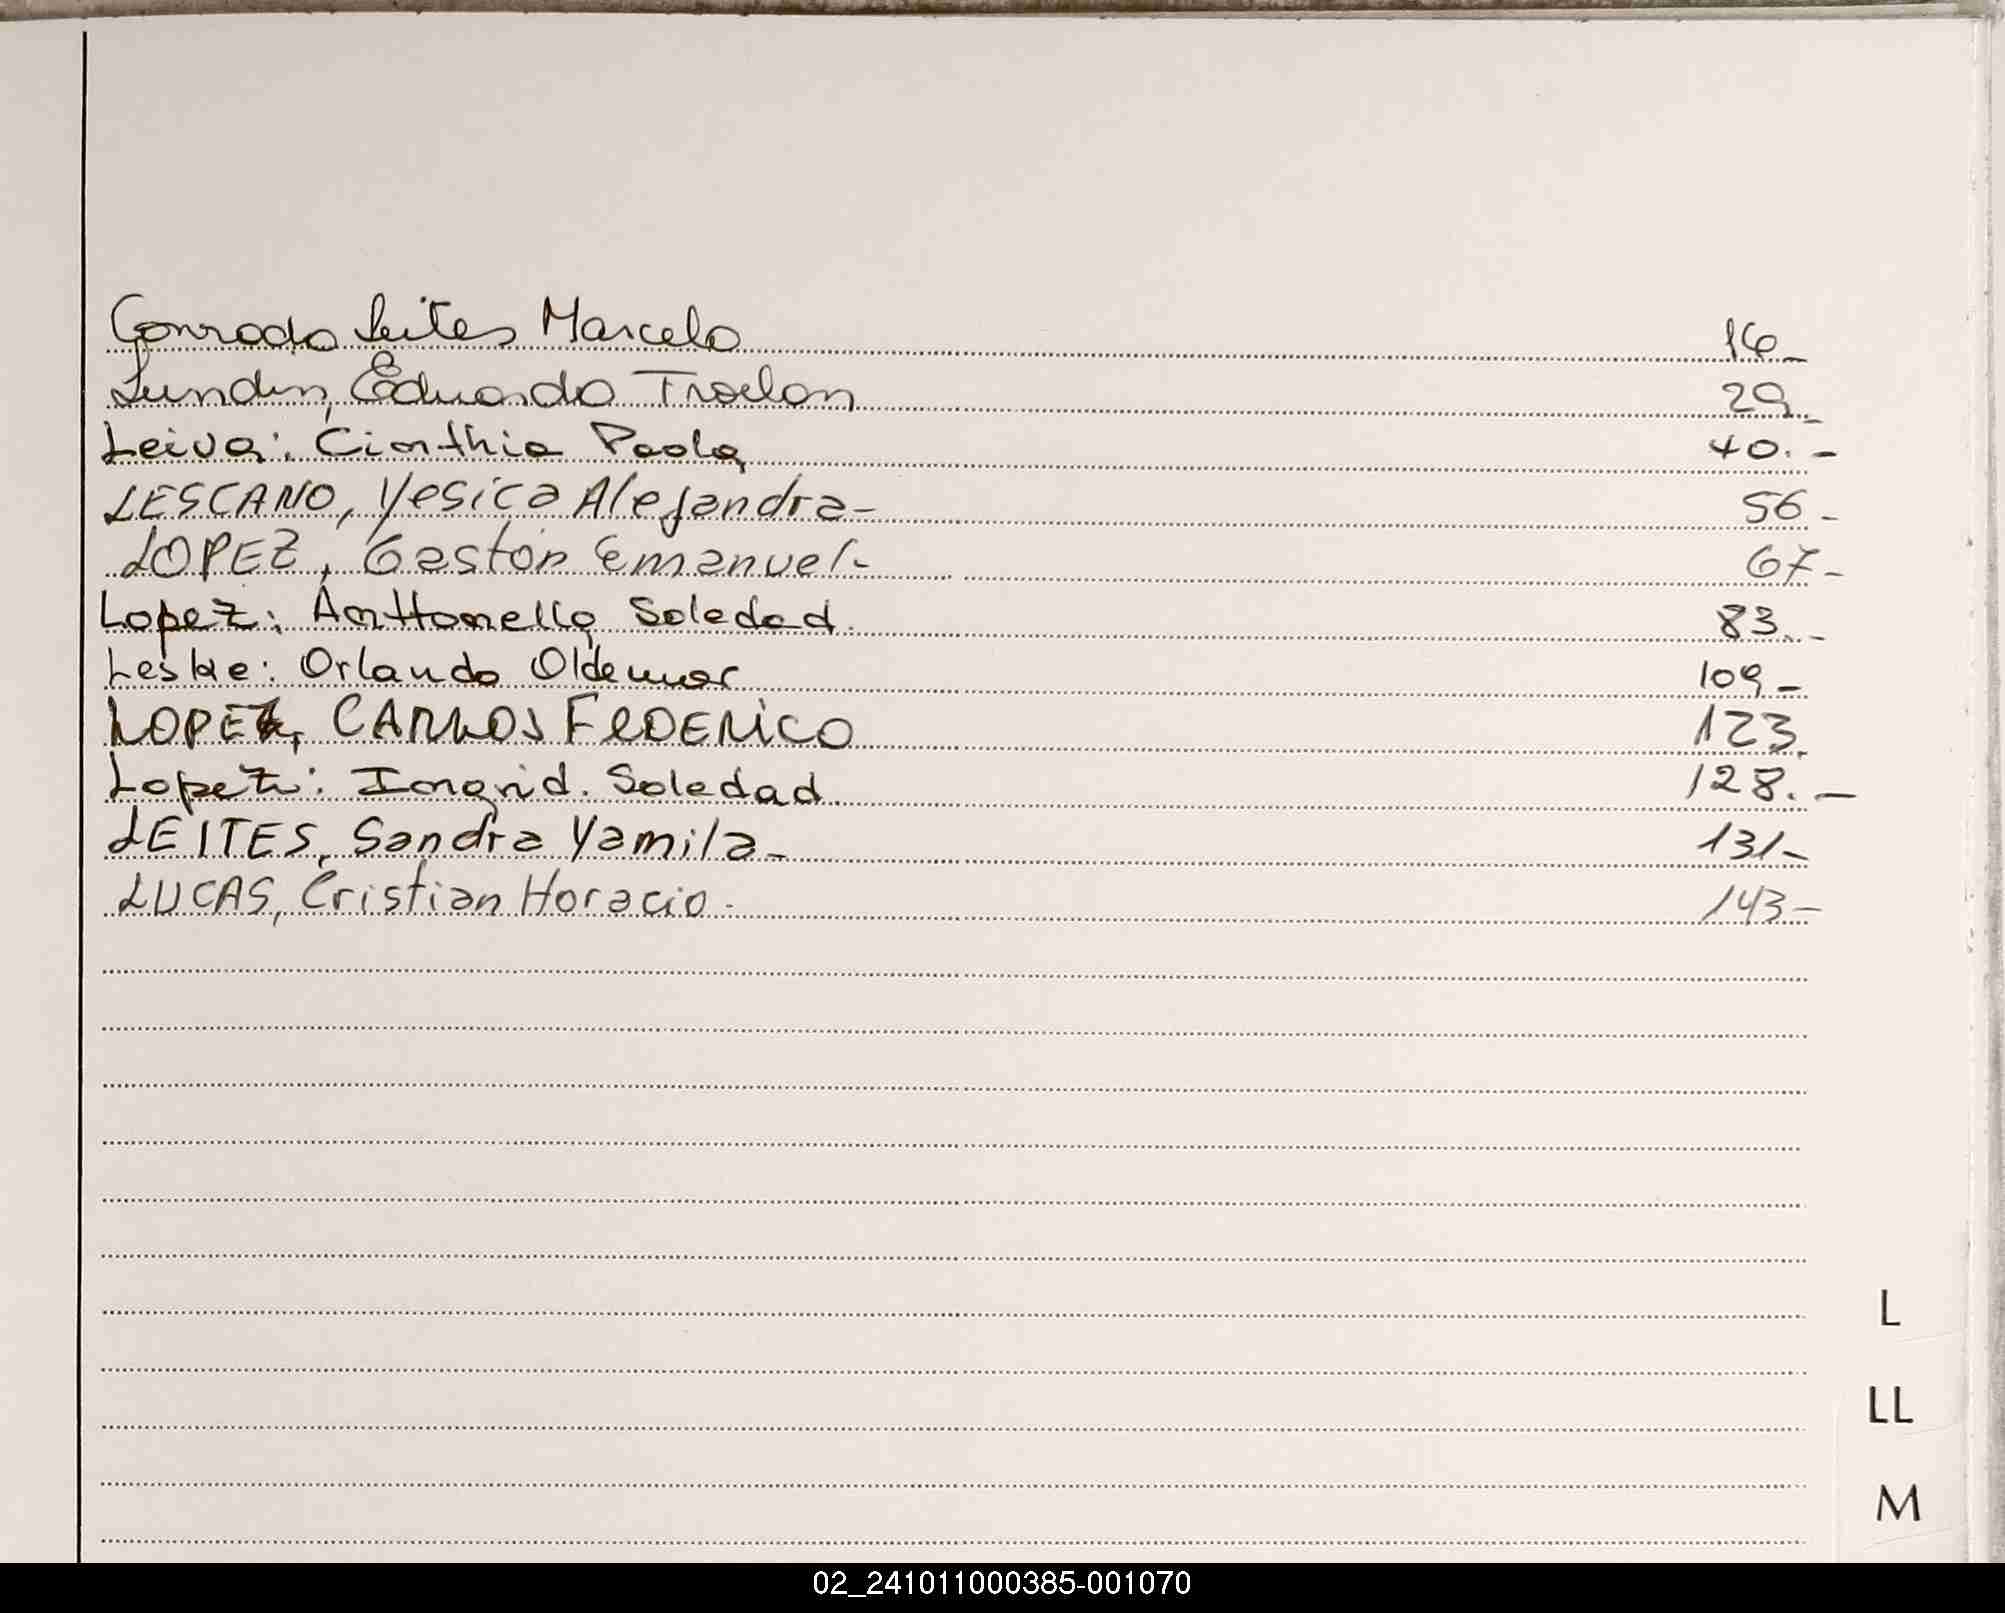 Conrado Leites Marcelo 16_
Lundin, Eduardo Troelon 29._
Leiva: Cinthia Paola 40.-
LESCANO, Yesica Alejandra- 56-
LOPEZ, Gastón Emanuel- 67-
Lopez: Anttonella Soledad. 83.-
Leske: Orlando Oldemar 109-
LOPEZ, CARLOS FEDERICO 123.
Lopez: Ingrid. Soledad. 128.-
LEITES, Sandra Yamila- 131-
LUCAS, Cristian Horacio- 143-
L
LL
M
02_241011000385-001070